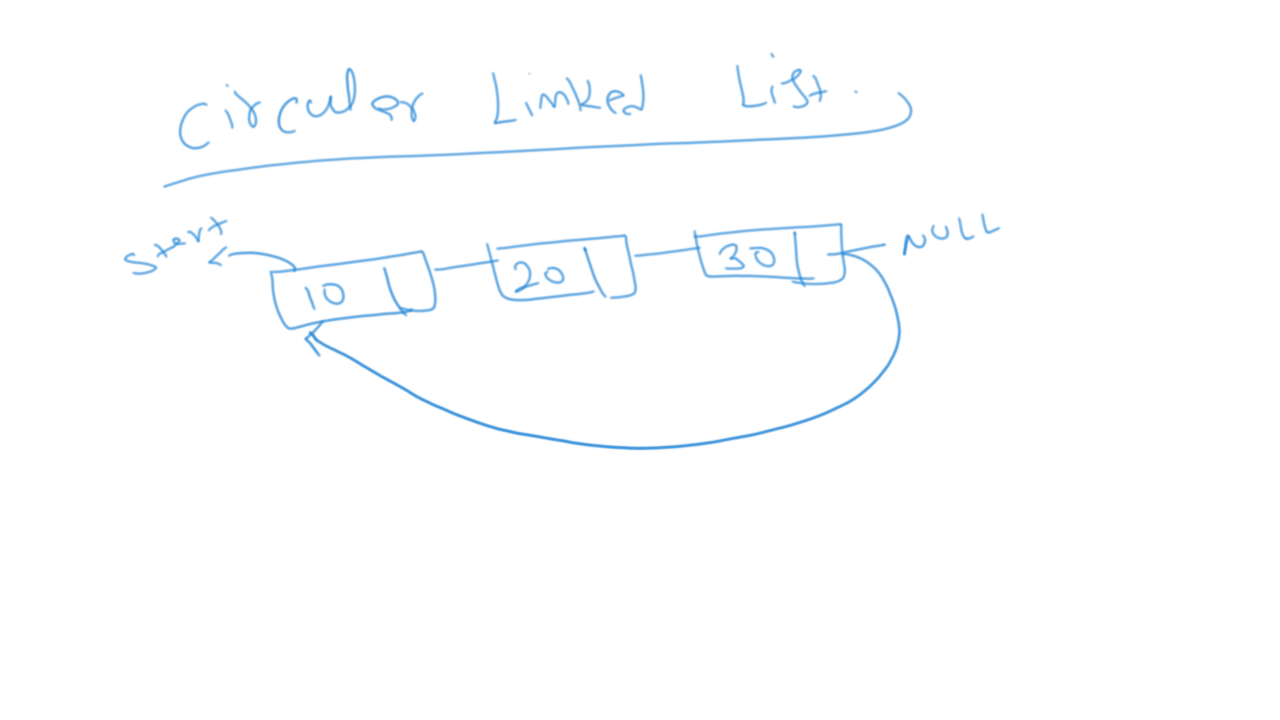 Circular Linked List.
Start
10 20 30 NULL